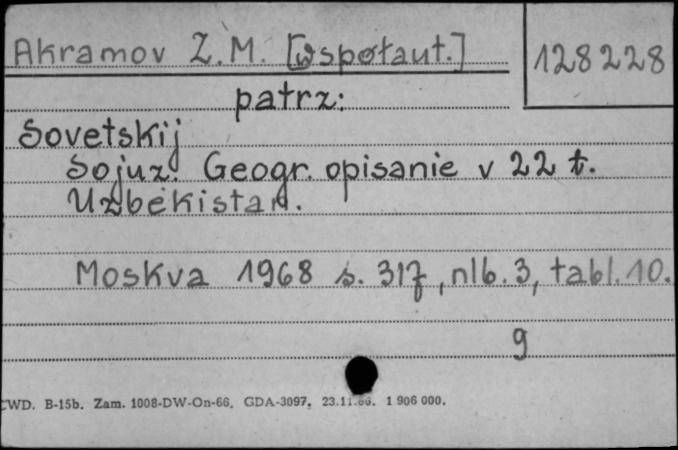 Akramov Z. M. [współaut.]
128228
patrz:
Sovetskij
Sojuz. Geogr. opisanie v 22 t.
Uzbekistan.
Moskva 1968 s. 317, nlb. 3, tabl. 10.
9
CWD. B-15b. Zam. 1008-DW-On-66. GDA-3097. 23.11.66. 1 906 000.